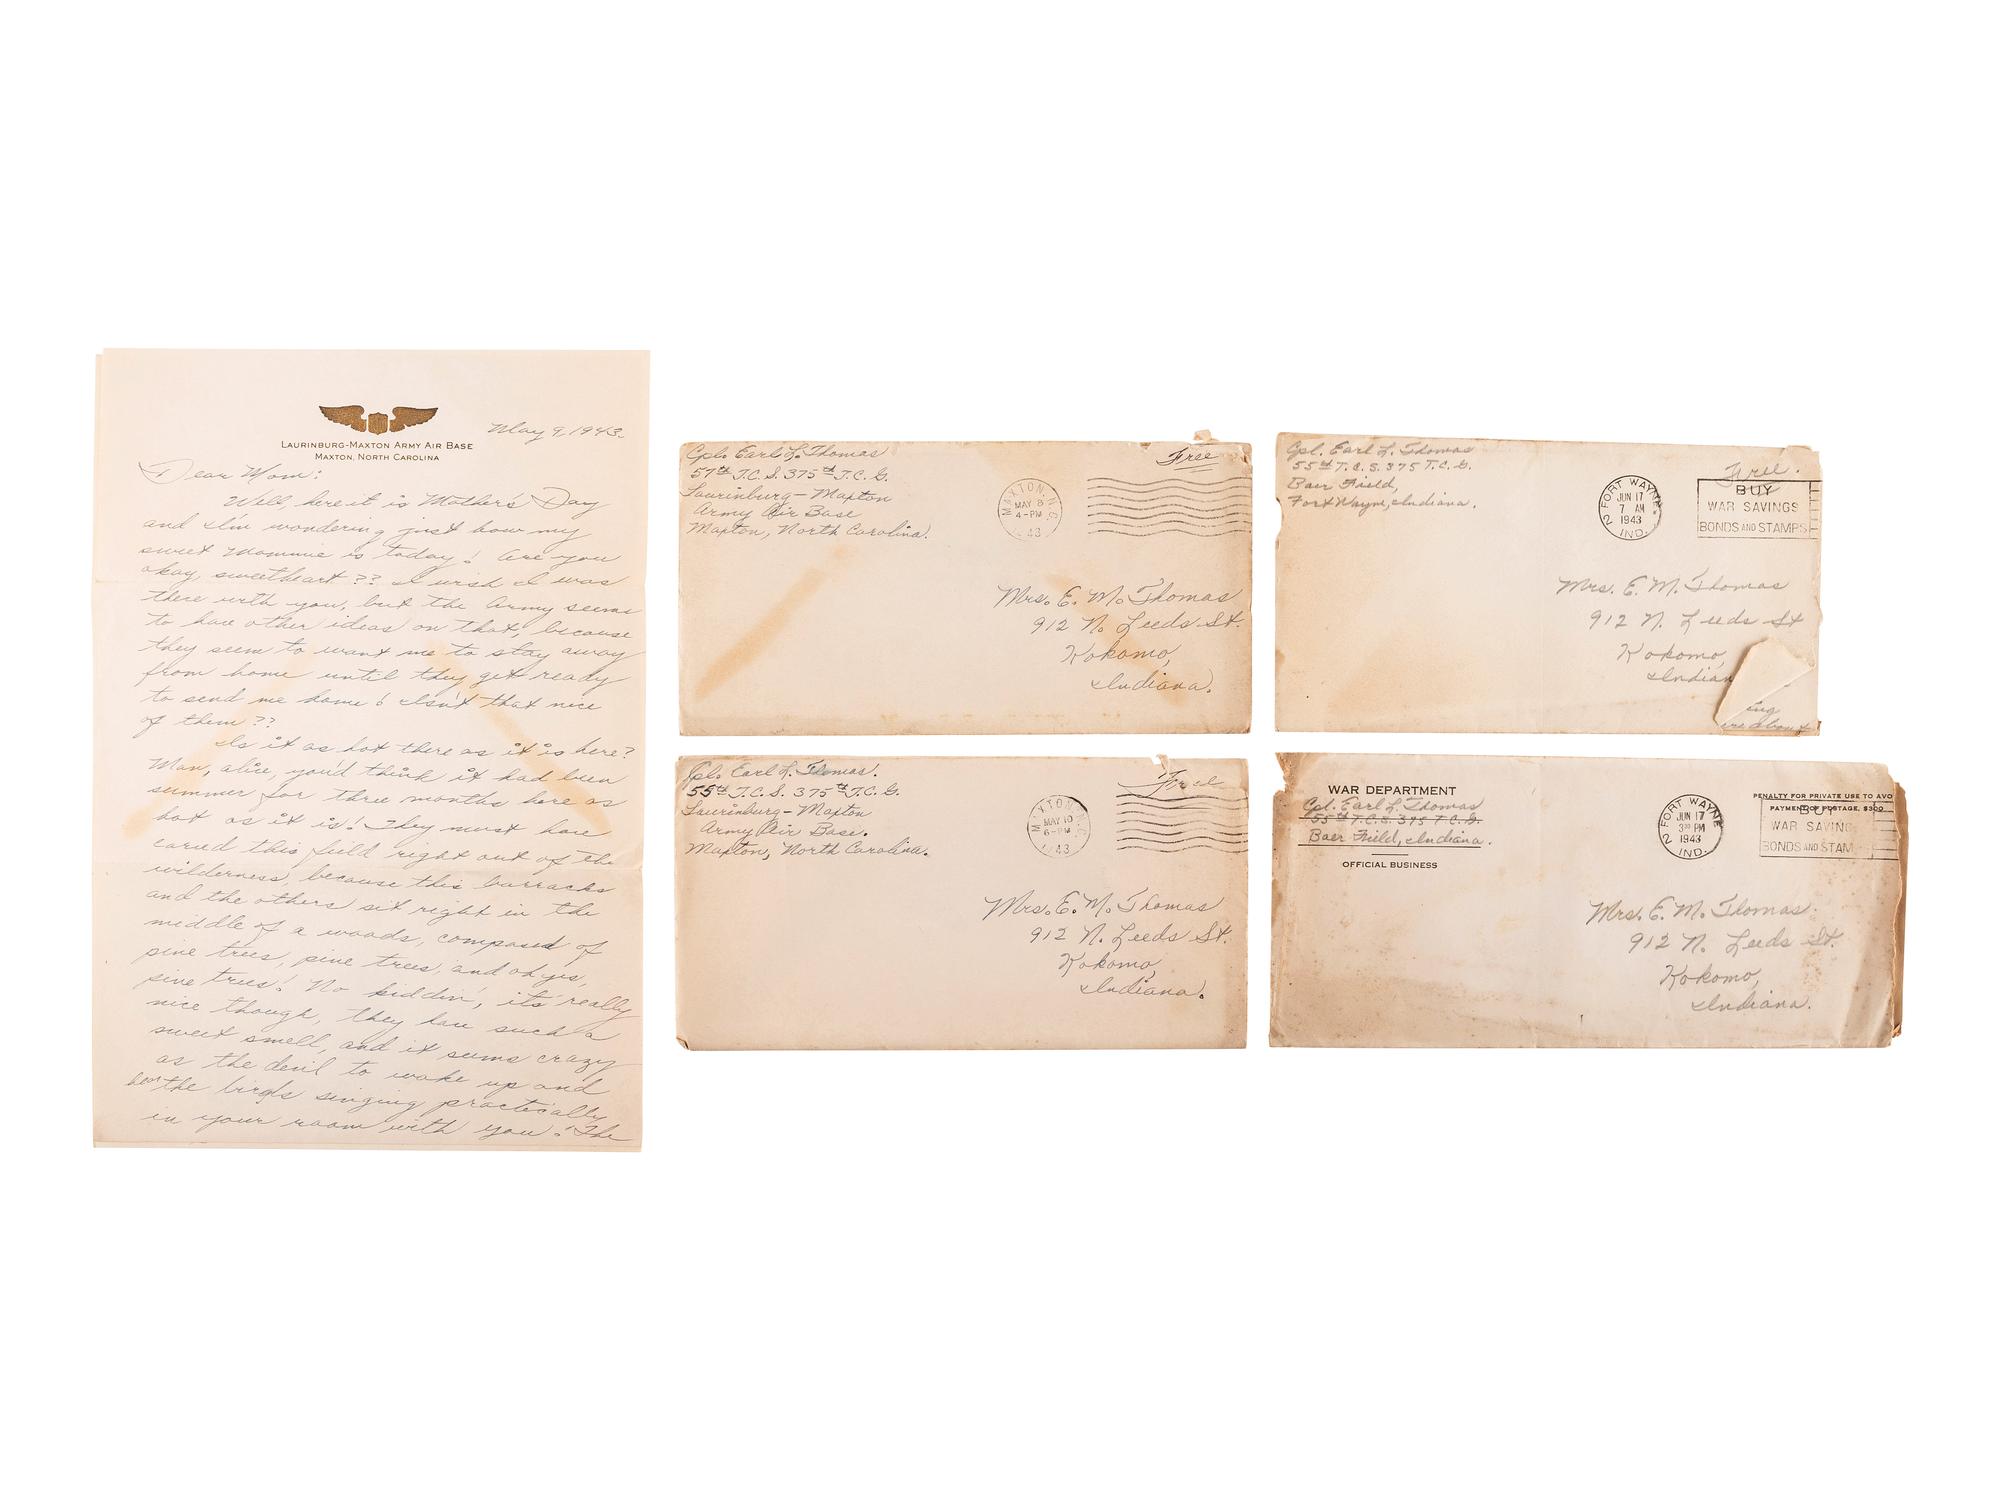 LAURINBURG-MAXTON ARMY AIR BASE
MAXTON, NORTH CAROLINA
May 9, 1943.
Dear Mom:
Well, here it is Mother's Day
and I'm wondering just how my
sweet Mommie is today! Are you
okay, sweetheart?? I wish I was
there with you, but the Army seems
to have other ideas on that, because
they seem to want me to stay away
from home until they get ready
to send me home! Isn't that nice
of them??
Is it as hot there as it is here?
Man, alice, you'd think it had been
summer for three months here as
hot as it is! They must have
carved this field right out of the
wilderness, because this barracks
and the others sit right in the
middle of a woods, composed of
pine trees, pine trees, and oh yes,
pine trees! No kiddin', it's really
nice though, they have such a
sweet smell, and it seems crazy
as the devil to wake up and
hear the birds singing practically
in your room with you! The
Cpl. Earl L. Thomas
57th T.C.S. 375th T.C.G.
Laurinburg-Maxton
Army Air Base
Maxton, North Carolina.
Free
MAXTON, N.C.
MAY 8
4-PM
43
Mrs. E. M. Thomas
912 N. Leeds St.
Kokomo,
Indiana.
Cpl. Earl L. Thomas
55th T.C.S. 375 T.C.G.
Baer Field,
Fort Wayne, Indiana.
Free.
2 FORT WAYNE,
JUN 17
7 AM
1943
IND.
BUY
WAR SAVINGS
BONDS AND STAMPS
Mrs. E. M. Thomas
912 N. Leeds St
Kokomo,
Indian
Cpl. Earl L. Thomas.
55th T.C.S. 375th T.C.G.
Laurinburg-Maxton
Army Air Base.
Maxton, North Carolina.
Free
MAXTON, N.C.
MAY 10
6-PM
43
Mrs. E. M. Thomas
912 N. Leeds St.
Kokomo,
Indiana.
WAR DEPARTMENT
Cpl. Earl L. Thomas
55th T.C.S. 375 T.C.G.
Baer Field, Indiana.
OFFICIAL BUSINESS
2 FORT WAYNE
JUN 17
3 30 PM
1943
IND.
PENALTY FOR PRIVATE USE TO AVO
PAYMENT OF POSTAGE, $300
BUY
WAR SAVING
BONDS AND STAM
Mrs. E. M. Thomas
912 N. Leeds St.
Kokomo,
Indiana.